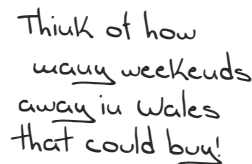 Think of how
many weekends
away in Wales
that could buy!